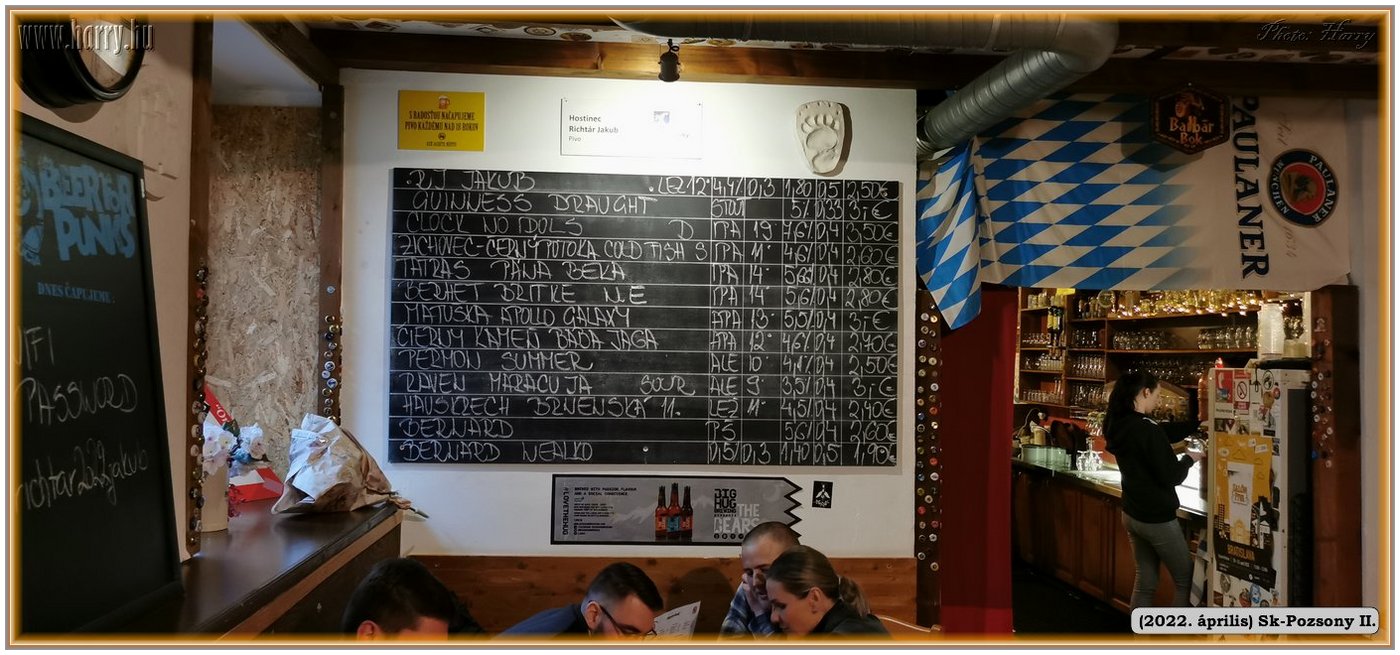 www.harry.hu
Photo: Harry
S RADOSŤOU NAČAPUJEME
PIVO KAŽDÉMU NAD 18 ROKOV
Hostinec
Richtár Jakub
Pivo
BEER PUNKS
DNES ČAPUJEME:
WIFI
PASSWORD
richtar2029jakub
RJ JAKUB LEŽ 12° 4,4% 0,3 1,80 0,5 2,50€
GUINNESS DRAUGHT STOUT 5% 0,33 3,-€
CLOCK NO IDOLS D IPA 19 7,6% 0,4 3,50€
ZICHOVEC-ČERNÝ POTOKA COLD FISH S IPA 11° 4,6% 0,4 2,60€
TATRAS PANA BEKA IPA 14° 5,6% 0,4 2,80€
BERHET BRITKE NE IPA 14° 5,6% 0,4 2,80€
MATUŠKA APOLLO GALAXY IPA 13° 5,5% 0,4 3,-€
ČIERNY KAMEŇ BABA JAGA APA 12° 4,6% 0,4 2,40€
PERMON SUMMER ALE 10° 4,1% 0,4 2,50€
RAVEN MARACUJA SOUR ALE 9° 3,5% 0,4 3,-€
HAUSKRECH BRNENSKÁ 11. LEŽ 11° 4,5% 0,4 2,40€
BERNARD PŠ 5,6% 0,4 2,60€
BERNARD NEALKO 0,5% 0,3 1,40 0,5 1,90€
#LOVETHEHUG
BIG
HUG
BREWING
THE
BEARS
Balbär
Bok
PAULANER
PAULANER
MÜNCHEN
BRATISLAVA
(2022. április) Sk-Pozsony II.